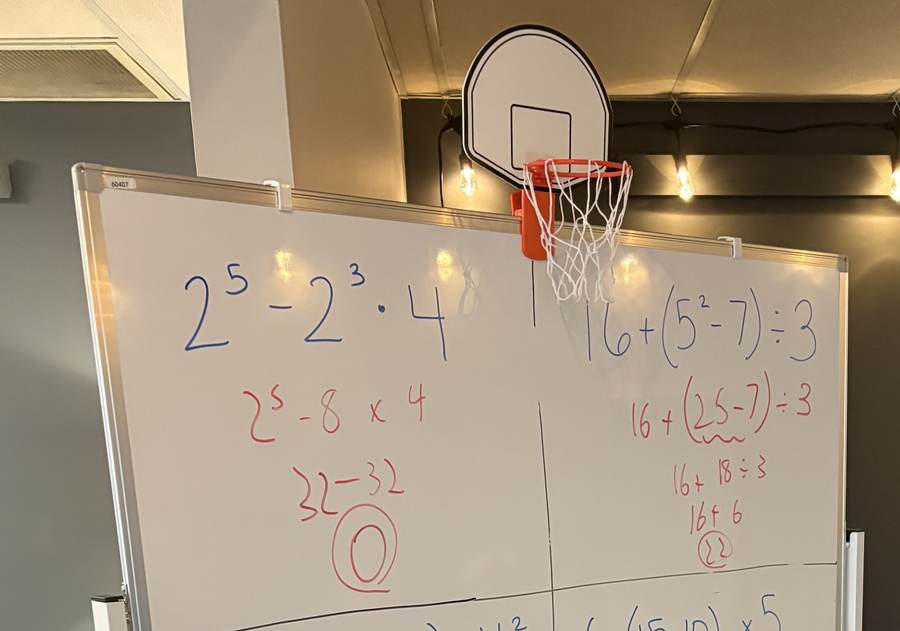 60407
2⁵ - 2³ · 4
2⁵ - 8 × 4
32 - 32
0
16 + (5² - 7) ÷ 3
16 + (25 - 7) ÷ 3
16 + 18 ÷ 3
16 + 6
22